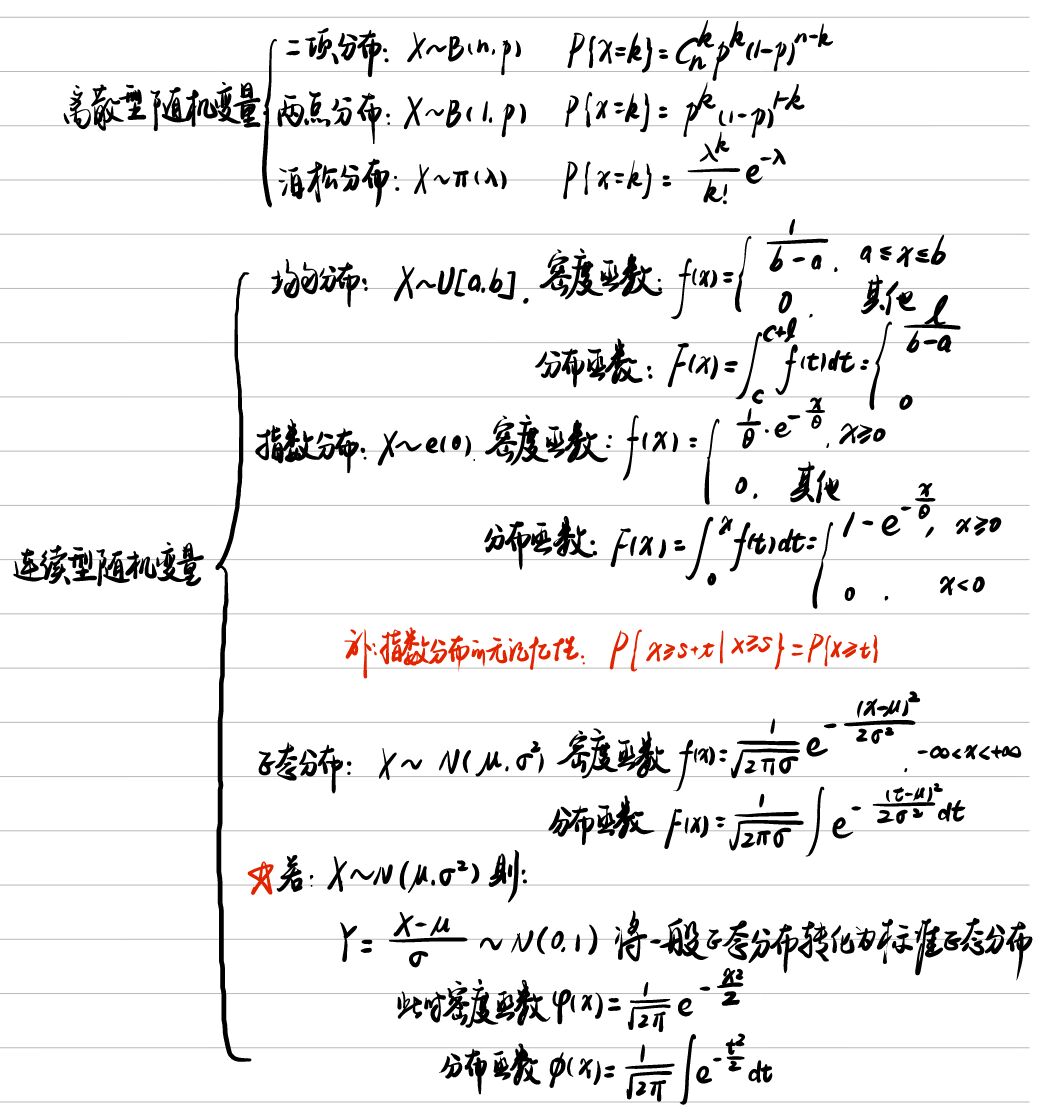 离散型随机变量
二项分布: X~B(n,p) P{X=k}=Cₙᵏpᵏ(1-p)ⁿ⁻ᵏ
两点分布: X~B(1,p) P{X=k}=pᵏ(1-p)¹⁻ᵏ
泊松分布: X~π(λ) P{X=k}=λᵏ/k! e^(-λ)
连续型随机变量
均匀分布: X~U[a,b], 密度函数: f(x)={1/(b-a), a≤x≤b
0, 其他
分布函数: F(x)=∫_c^(c+l) f(t)dt={l/(b-a)
0
指数分布: X~e(θ) 密度函数: f(x)={1/θ·e^(-x/θ), x≥0
0, 其他
分布函数: F(x)=∫_0^x f(t)dt={1-e^(-x/θ), x≥0
0, x<0
补:指数分布的无记忆性: P{X≥s+t|X≥s}=P{X≥t}
正态分布: X~N(μ,σ²) 密度函数 f(x)=1/√(2πσ) e^(-(x-μ)²/2σ²), -∞<x<+∞
分布函数 F(x)=1/√(2πσ) ∫e^(-(t-μ)²/2σ²)dt
☆若: X~N(μ,σ²) 则:
Y=(X-μ)/σ ~N(0,1) 将一般正态分布转化为标准正态分布
此时密度函数 φ(x)=1/√(2π) e^(-x²/2)
分布函数 Φ(x)=1/√(2π) ∫e^(-t²/2)dt